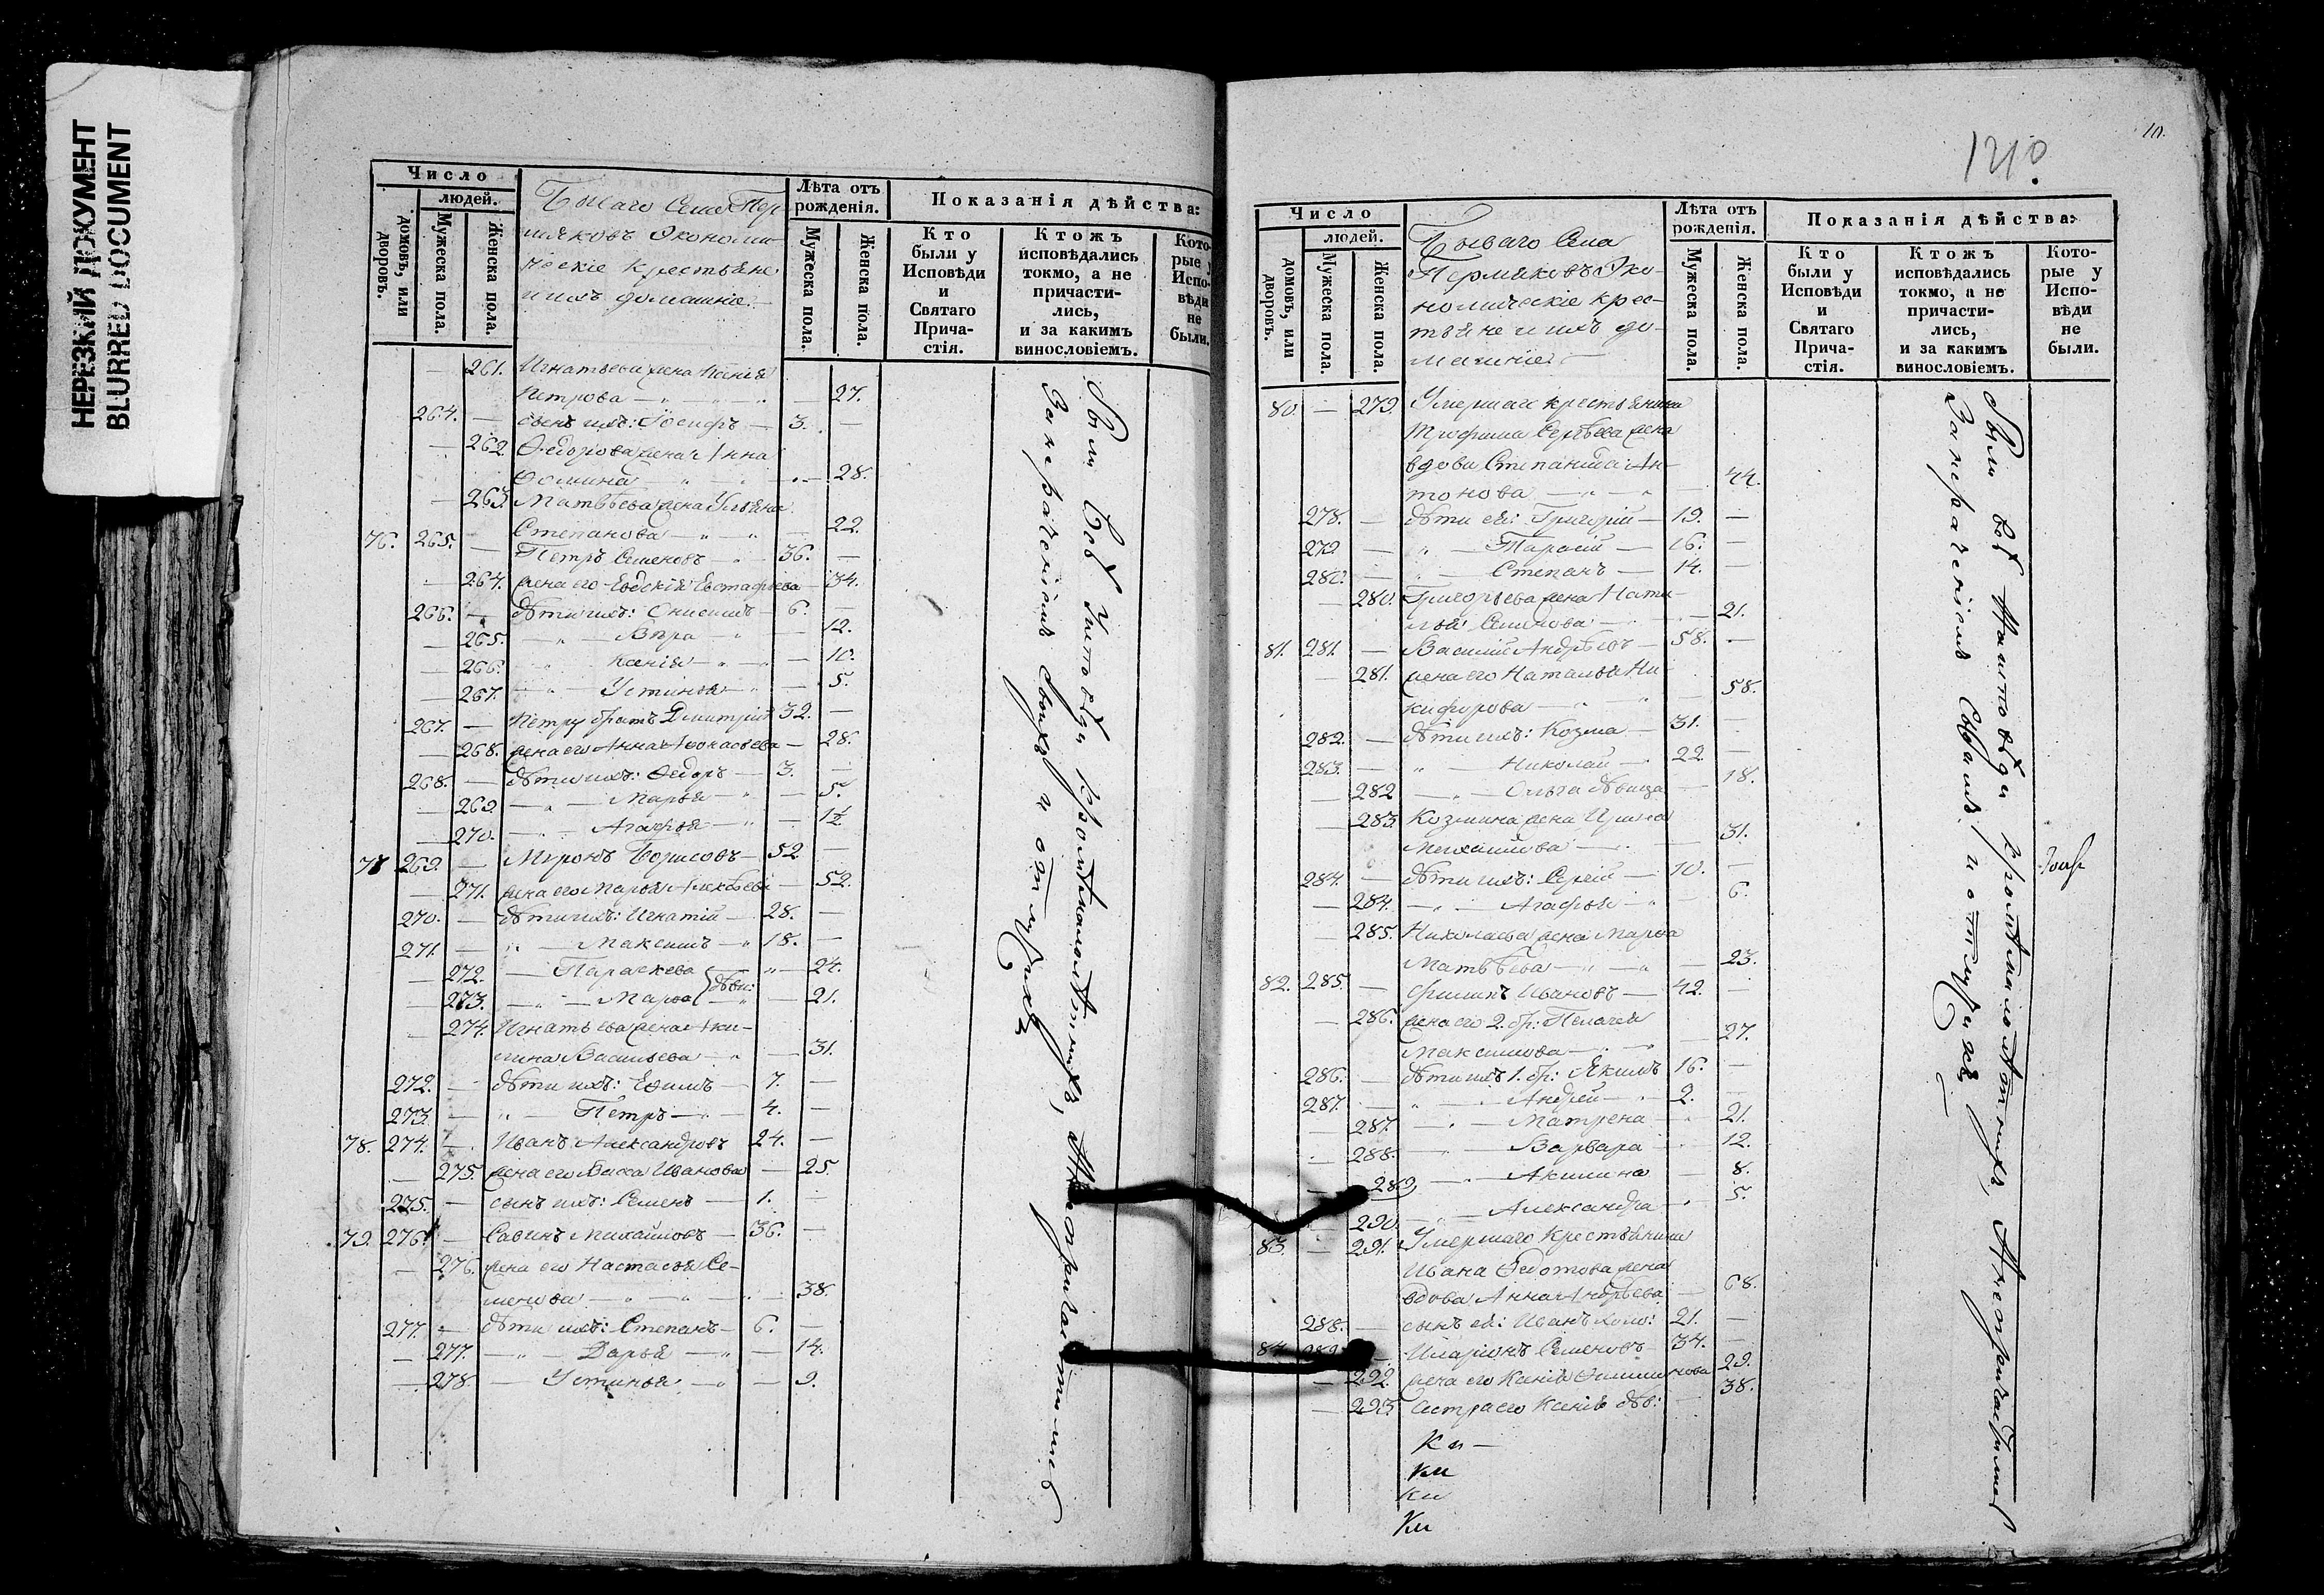 НЕРЕЗКИЙ ДОКУМЕНТ
BLURRED DOCUMENT
Число
людей.
домовъ, или дворовъ.
Мужеска пола.
Женска пола.
Бываго Села Пер-
мяковъ Экономи-
ческіе крестьяне
и ихъ домашніе.
Лѣта отъ рожденія.
Мужеска пола.
Женска пола.
Показанія дѣйства:
Кто были у Исповѣди и Святаго Прича-стія.
Ктожъ исповѣдались токмо, а не причасти-лись, и за какимъ винословіемъ.
Кото-рые у Испо-вѣди не были.
— 261. Игнатьева жена Ксенія
Петрова — 27.
264. — сынъ ихъ: Іосифъ — 3. —
— 262. Ѳедорова жена Анна
Ѳомина — 28.
— 263. Матвѣева жена Ульяна
Степанова — 22.
76. 265. — Петръ Семеновъ 36. —
— 264. жена его Евдокія Евстафьева — 34.
266. — дѣти ихъ: Онисимъ 6. —
— 265. — Вѣра — 12.
— 266. Ксенія — 10.
— 267. Устинья — 5.
267. — Петру братъ Дмитрій 32. —
— 268. жена его Анна Аѳонасьева — 28.
268. — дѣти ихъ: Ѳедоръ — 3. —
— 269. — Марья — 5.
— 270. — Агафья — 1½
77. 269. — Миронъ Борисовъ — 52. —
— 271. жена его Марья Алексѣева — 52.
270. — дѣти ихъ: Игнатій — 28. —
271. — Максимъ — 18. —
— 272. — Параскева — 24.
— 273. — Марѳа дѣв: — 21.
— 274. Игнатьева жена Аки-
лина Васильева — 31.
272. — дѣти ихъ: Ефимъ — 7. —
273. — Петръ — 4. —
78. 274. — Иванъ Александровъ 24. —
— 275. жена его Васса Иванова — 25.
275. — сынъ ихъ: Семенъ — 1. —
79. 276. — Савинъ Михайловъ — 36. —
— 276. жена его Настасья Се-
менова — 38.
277. — дѣти ихъ: Степанъ — 6. —
— 277. — Дарья — 14.
— 278. — Устинья — 9.
Были всѣ у исповѣди кромѣ малолѣтнихъ, а не причастились
За нераченіемъ своихъ и отлучихъ
10.
Число
людей.
домовъ, или дворовъ.
Мужеска пола.
Женска пола.
Бываго Села
Пермяковъ Эко-
номическіе крес-
тьяне и ихъ до-
машніе
Лѣта отъ рожденія.
Мужеска пола.
Женска пола.
Показанія дѣйства:
Кто были у Исповѣди и Святаго Прича-стія.
Ктожъ исповѣдались токмо, а не причасти-лись, и за какимъ винословіемъ.
Кото-рые у Испо-вѣди не были.
80. — 279. Умершаго крестьянина
Трофима Сергѣева жена
вдова Степанида Ан-
тонова — 44.
278. — дѣти ея: Григорій — 19. —
279. — Тарасій — 16. —
280. — Степанъ — 14. —
— 280. Григорьева жена Ната-
лья Семенова — 21.
81. 281. — Василій Андрѣевъ — 58. —
— 281. жена его Наталья Ни-
кифорова — 58.
282. — дѣти ихъ: Козма — 31. —
283. — Николай — 22. —
— 282 — Ольга дѣвица — 18.
— 283. Козмина жена Ирина
Михайлова — 31.
284. — дѣти ихъ: Сергій — 10. —
— 284. — Агафья — 6.
— 285. Николаева жена Марѳа
Матвѣева — 23.
82. 285. — Филипъ Ивановъ — 42. —
— 286. жена его 2. бр: Пелагея
Максимова — 27.
286. — дѣти ихъ 1. бр: Якимъ 16. —
287. — Андрей — 2. —
— 287. — Матрена — 21.
— 288. — Варвара 12.
— 289. — Акилина — 8.
— 290. — Александра 5.
83. — 291. Умершаго крестьянина
Ивана Ѳедотова жена
вдова Анна Андрѣева — 68.
288. — сынъ ея: Иванъ холо: 21. —
84. 289. — Иларіонъ Семеновъ 34. —
— 292. жена его Ксенія Филимонова 29.
— 293. Сестра его Ксенія дѣв: 38.
Ки —
Ки
Ки
Ки
Были всѣ у исповѣди кромѣ малолѣтнихъ, а не причастились
За нераченіемъ